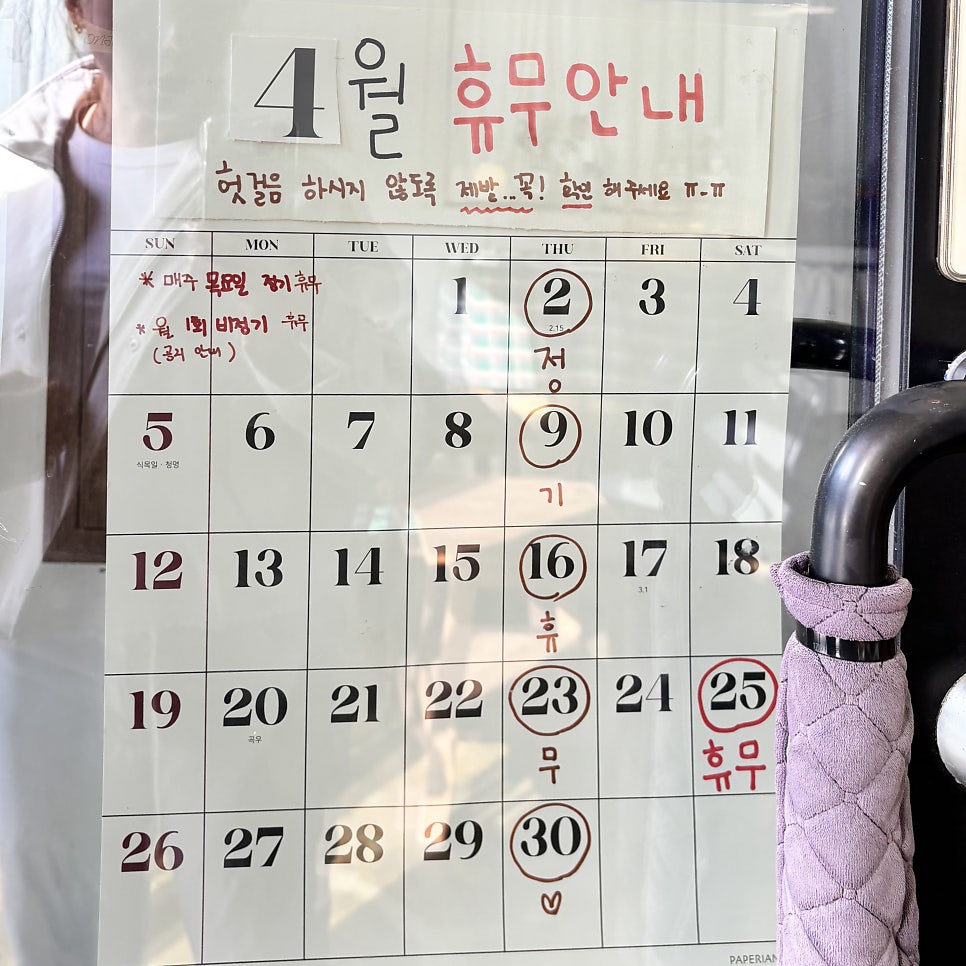 4월 휴무안내
헛걸음 하시지 않도록 제발..꼭! 확인 해주세요 ㅠ-ㅠ
SUN MON TUE WED THU FRI SAT
* 매주 목요일 정기 휴무
* 월 1회 비정기 휴무
(공지 안내)
1 2 3 4
2.15
정
5 6 7 8 9 10 11
식목일 · 청명
기
12 13 14 15 16 17 18
3.1
휴
19 20 21 22 23 24 25
곡우
무 휴무
26 27 28 29 30
♡
PAPERIAN